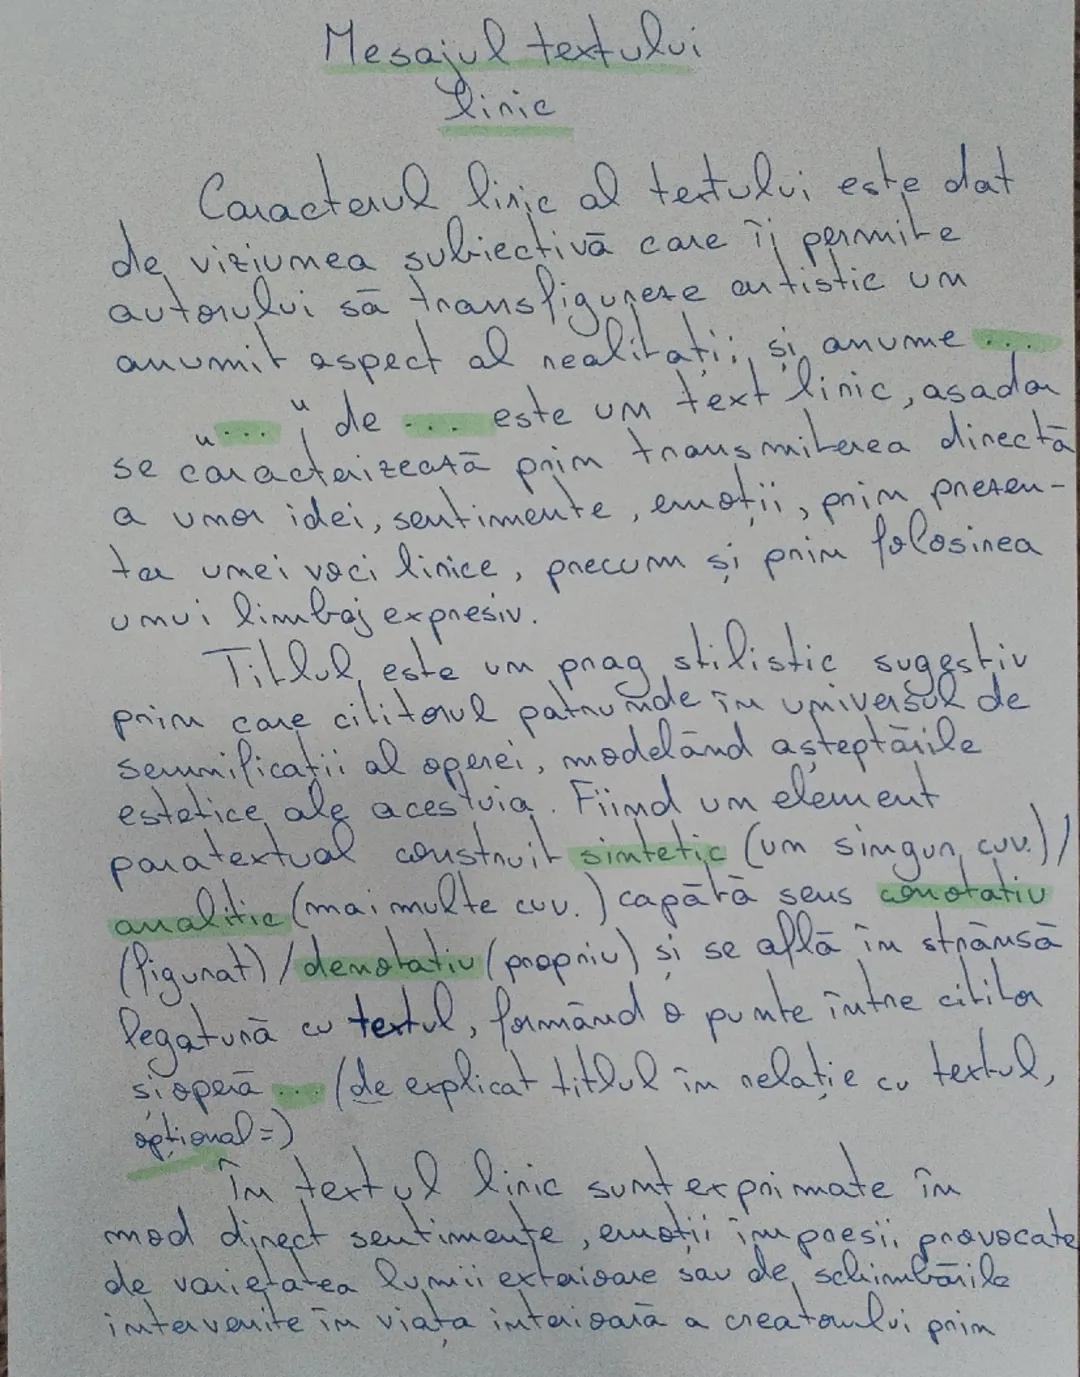 Mesajul textului
liric
Caracterul liric al textului este dat
de viziunea subiectivă care îi permite
autorului să transfigureze artistic un
anumit aspect al realității, și anume ...
"..." de ... este un text liric, așadar
se caracterizează prin transmiterea directă
a unor idei, sentimente, emoții, prin prezen-
ța unei voci lirice, precum și prin folosirea
unui limbaj expresiv.
Titlul este un prag stilistic sugestiv
prin care cititorul patrunde în universul de
semnificații al operei, modelând așteptările
estetice ale acestuia. Fiind un element
paratextual construit sintetic (un singur cuv.)/
analitic (mai multe cuv.) capătă sens conotativ
(figurat)/denotativ (propriu) și se află în strânsă
legatură cu textul, formând o punte între cititor
și operă ... (de explicat titlul în relație cu textul,
opțional=)
În textul liric sunt exprimate în
mod direct sentimente, emoții impresii provocate
de varietatea lumii exterioare sau de schimbările
intervenite în viața interioară a creatorului prin